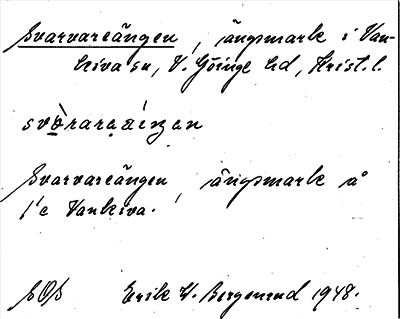 Svarvareängen, ängsmark i Van-
kiva sn, V. Göinge hd, Krist. l.
Svarvareängen, ängsmark å
Vankiva.
SOS Erik W. Bergerud 1948.